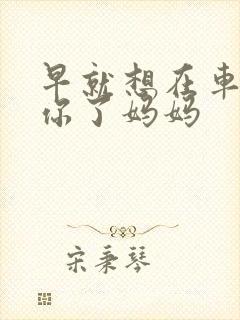 早就想在車
你了妈妈
宋秉琴